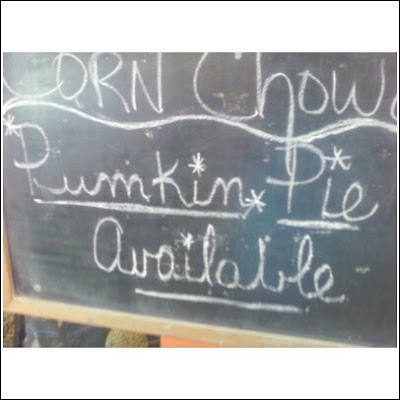 CORN Chow
*Pumkin* Pie*
Available